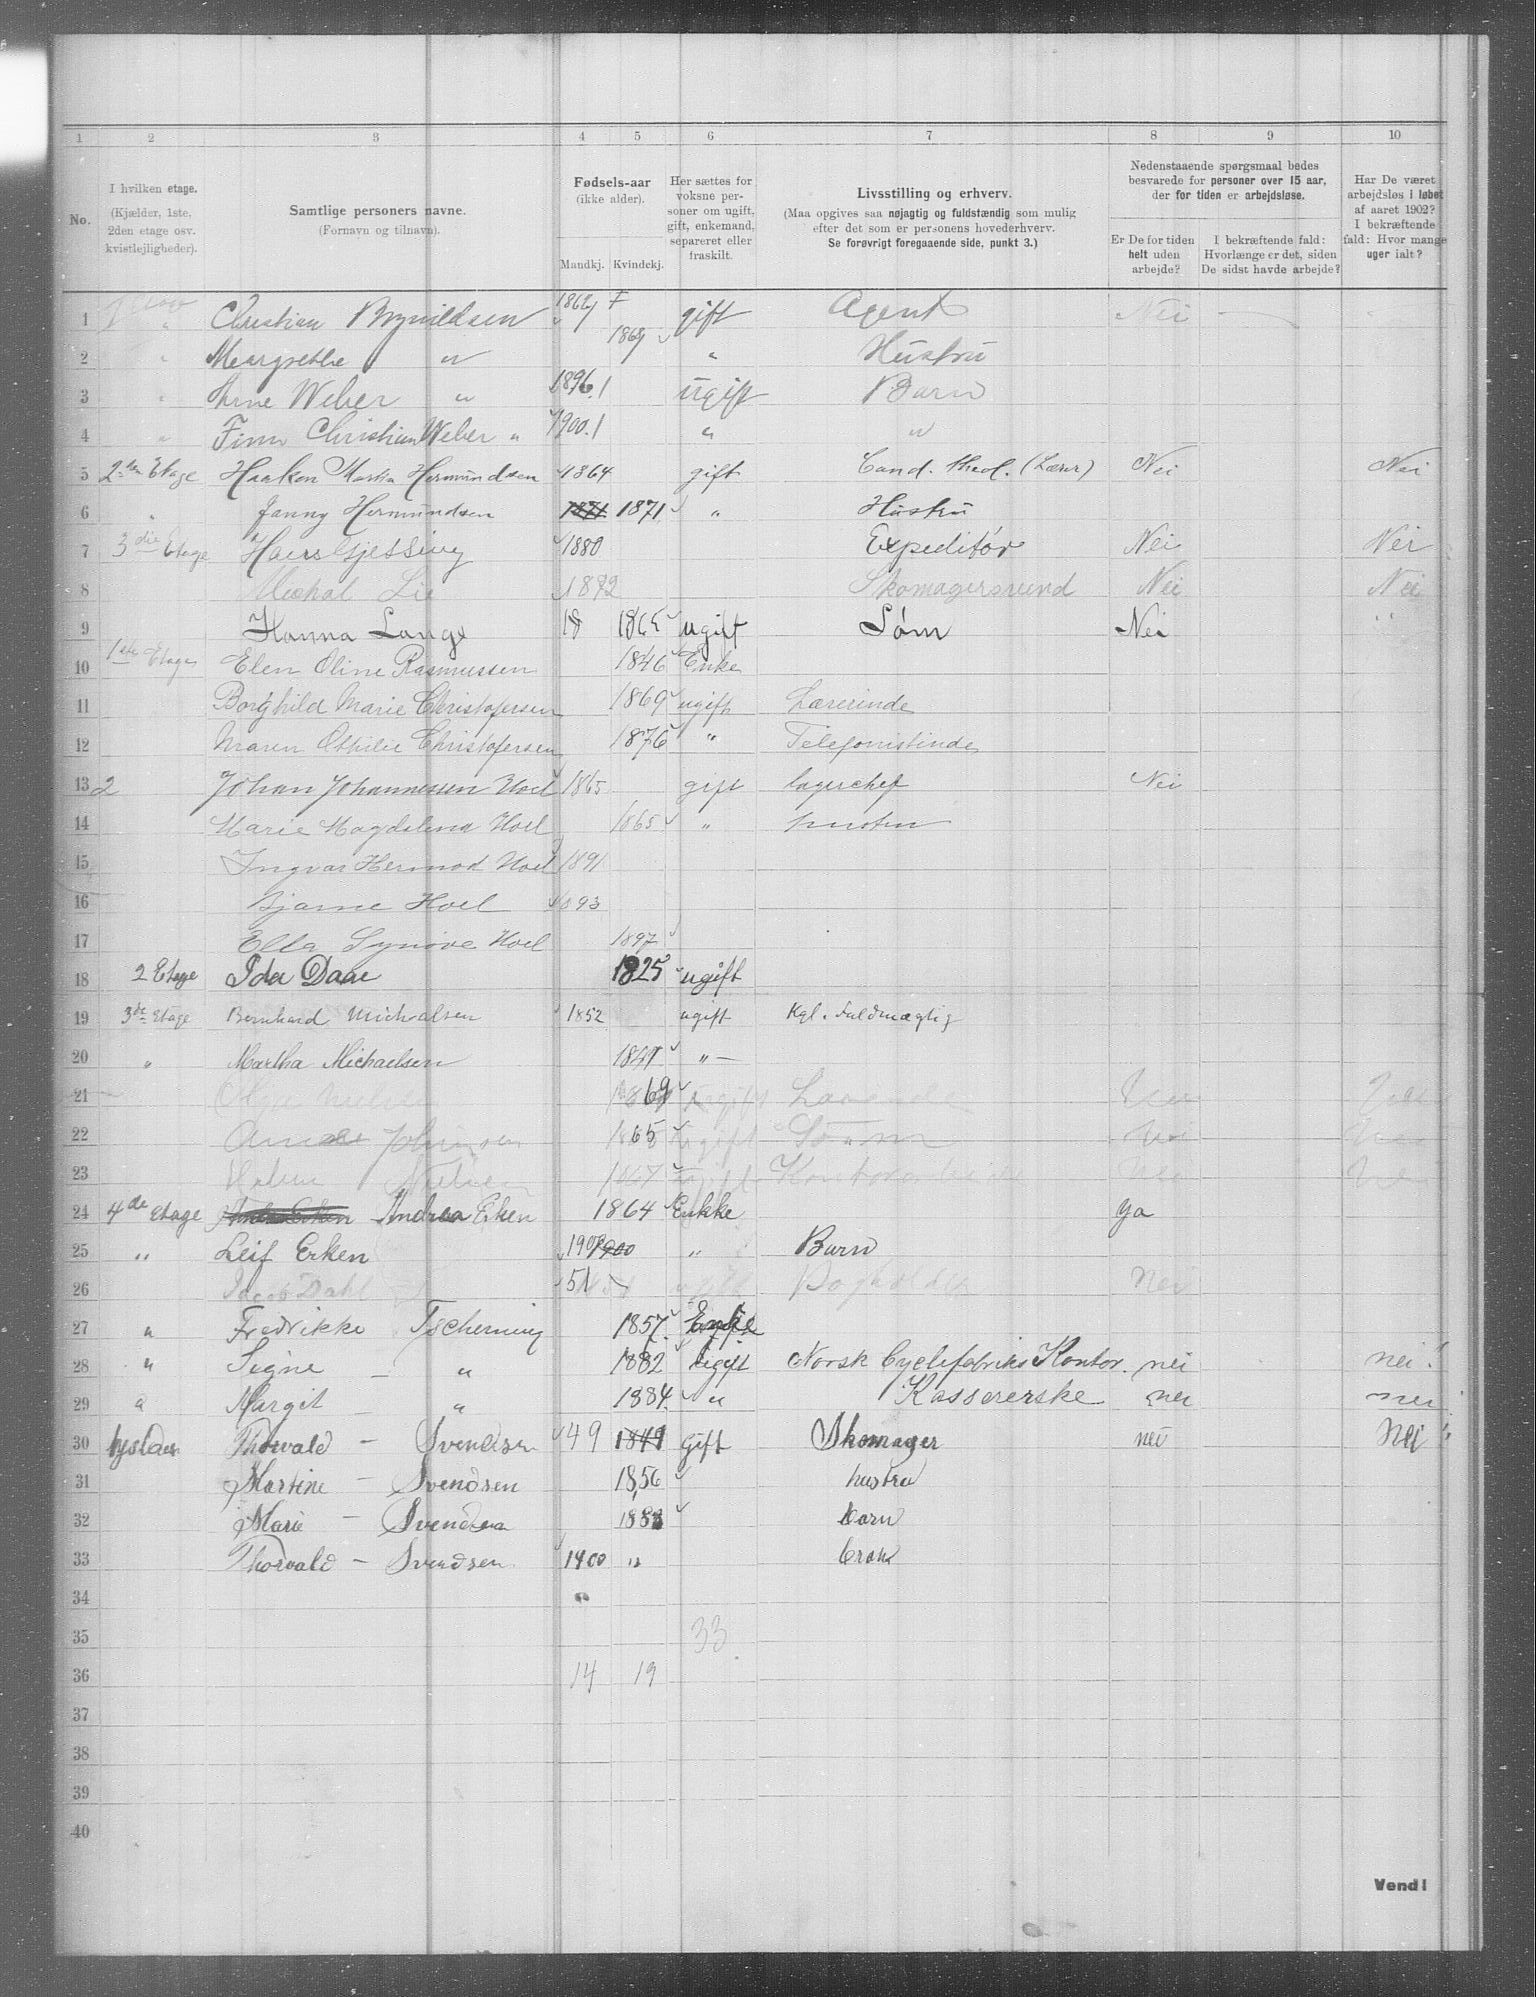 1 2 3 4 5 6 7 8 9 10
No.
I hvilken etage.
(Kjælder, 1ste,
2den etage osv.
kvistlejligheder).
Samtlige personers navne.
(Fornavn og tilnavn).
Fødsels-aar
(ikke alder).
Mandkj. Kvindekj.
Her sættes for
voksne per-
soner om ugift,
gift, enkemand,
separeret eller
fraskilt.
Livsstilling og erhverv.
(Maa opgives saa nøjagtig og fuldstændig som mulig
efter det som er personens hovederhverv.
Se forøvrigt foregaaende side, punkt 3.)
Nedenstaaende spørgsmaal bedes
besvarede for personer over 15 aar,
der for tiden er arbejdsløse.
Er De for tiden
helt uden
arbejde?
I bekræftende fald:
Hvorlænge er det, siden
De sidst havde arbejde?
Har De været
arbejdsløs i løbet
af aaret 1902?
I bekræftende
fald: Hvor mange
uger ialt?
1 Christian Brynildsen gift Agent Nei
2 Margrethe " 1869 " Hustru
3 Arne Weber " 1896 ugift Barn
4 " Finn Christian Weber " 1900 " "
5 2den Etage Haakon Martin Hermundsen 1864 gift Cand. theol. (Lærer) Nei Nei
6 " Janny Hermundsen 1871 1871 " Hustru
7 3die Etage Hans Gjessing 1880 Expeditør Nei Nei
8 Lie Skomagersvend Nei Nei
9 Hanna Lange 18 1865 ugift Søm Nei "
10 1ste Etage Elen Oline Rasmussen 1846 Enke
11 Borghild Marie Christofersen 1869 ugift Lærerinde
12 Maren Othilie Christofersen 1876 " Telefonistinde
13 2 Johan Johannessen Hoel 1865 gift lagerchef Nei
14 Marie Magdalena Hoel 1865 " hustru
15 Ingvar Hermod Hoel 1891
16 Bjarne Hoel 1893
17 Ella Synøve Hoel 1897
18 2 Etage Ida Daae 1825 ugift
19 3de Etage Bernhard Michalsen 1852 ugift Kgl. Fuldmægtig
20 " Martha Michaelsen "
21 Nielsen 69
22 65 ugift
23 Nielsen 1867 Nei
24 4de Etage Andrea Erken 1864 Enkke ya
25 " Leif Erken 1900 " Barn
26 Jacob Dahl 51 Nei
27 " Fredrikke Tscherning 1857 Enke
28 " Signe — " 1882 Ugift Norsk Cyclefabriks Kontor. nei nei
29 " Margit " 1884 " Kassererske nei nei
30 Thorvald — Svendsen 49 1849 Gift Skomager nei Nei
31 Martine — Svendsen 1856 hustru
32 Marie — Svendsen barn
33 Thorvald — Svendsen 1900 "
34
35 33
36 14 19
37
38
39
40
Vend!